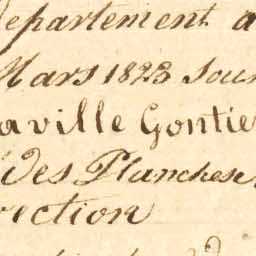 departement a
Mars 1823 sou
aville Gontie
des Planches
rection